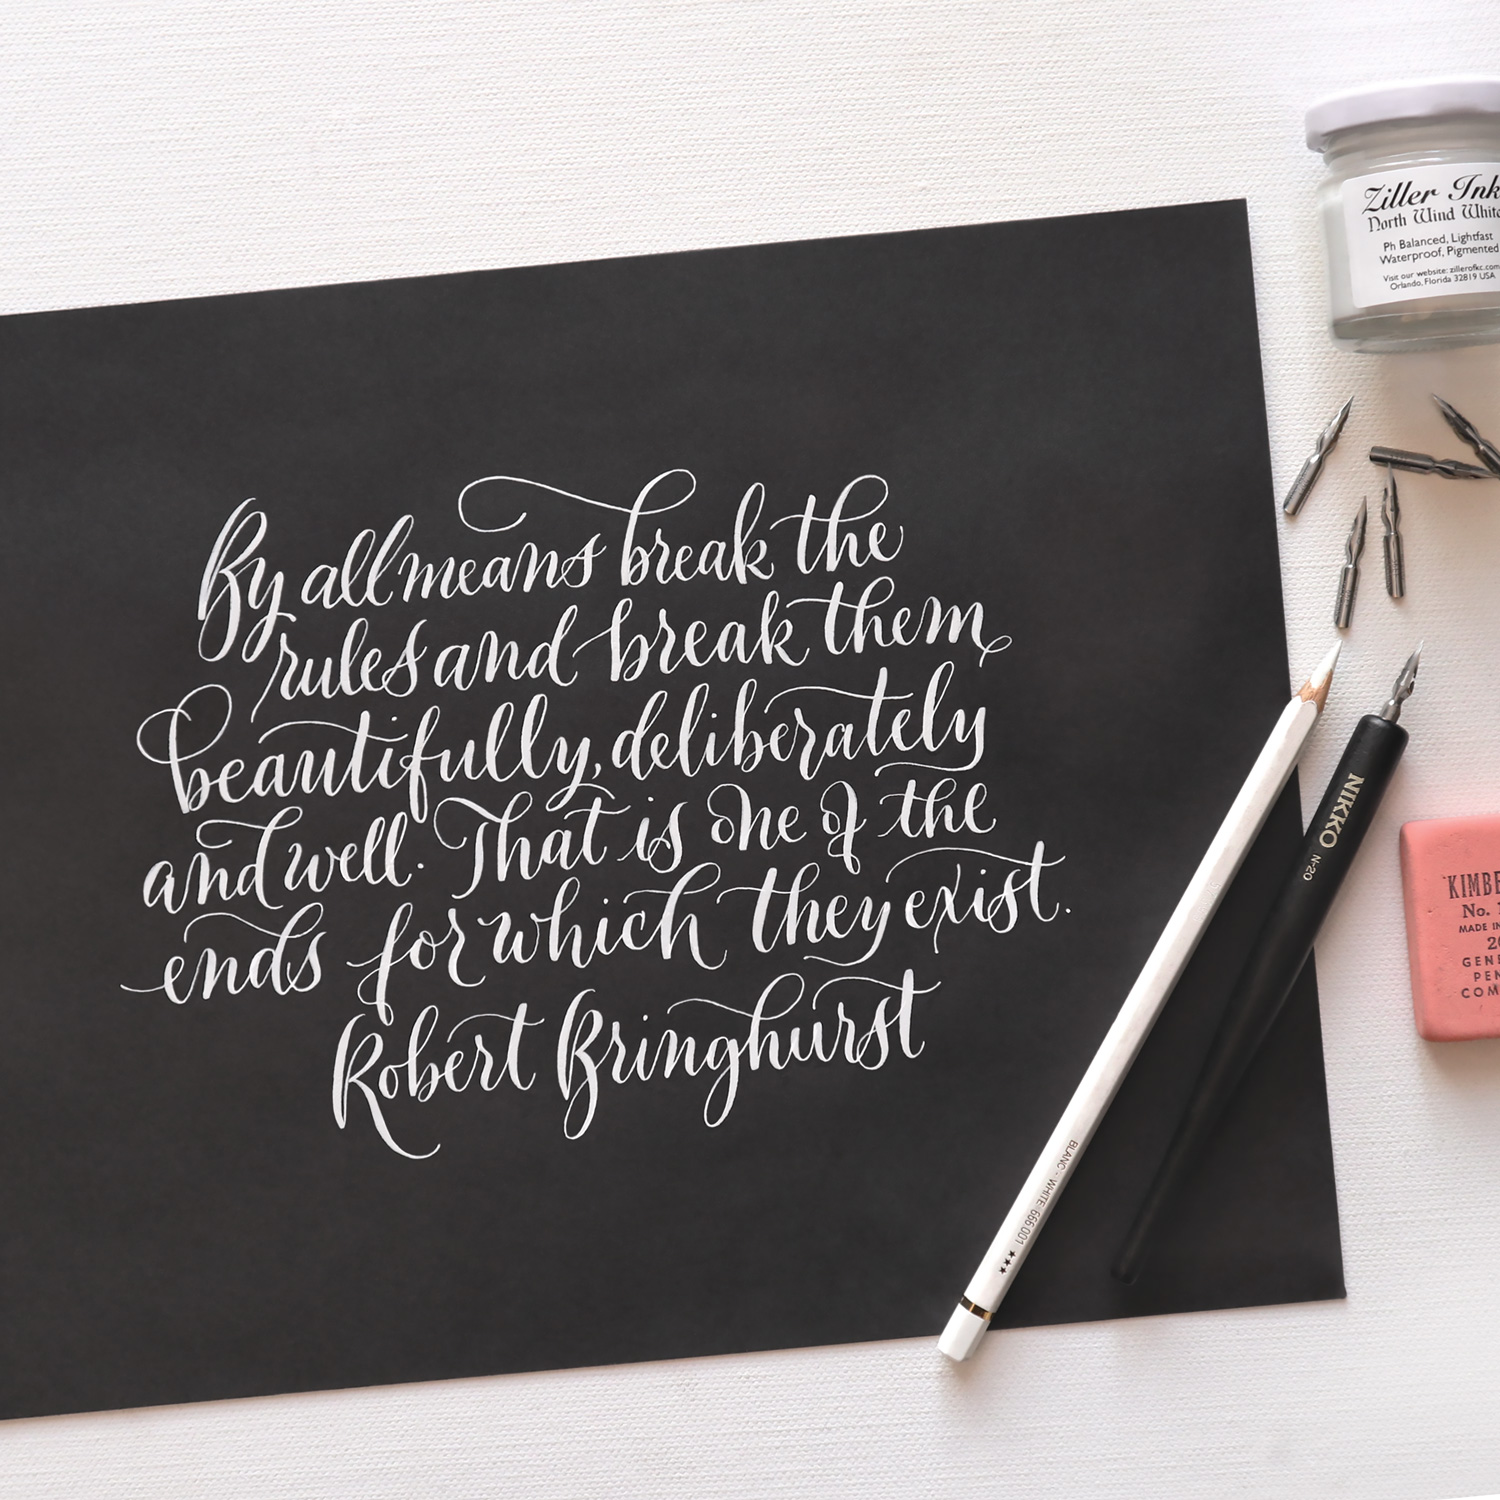 By all means break the
rules and break them
beautifully, deliberately
and well. That is one of the
ends for which they exist.
Robert Bringhurst
Ziller Ink
North Wind White
Ph Balanced, Lightfast
Waterproof, Pigmented
Visit our website: zillerofkc.com
Orlando, Florida 32819 USA
NIKKO N-20
BLANC - WHITE 666.001
KIMBE
No.
MADE IN
GENE
PEN
COM